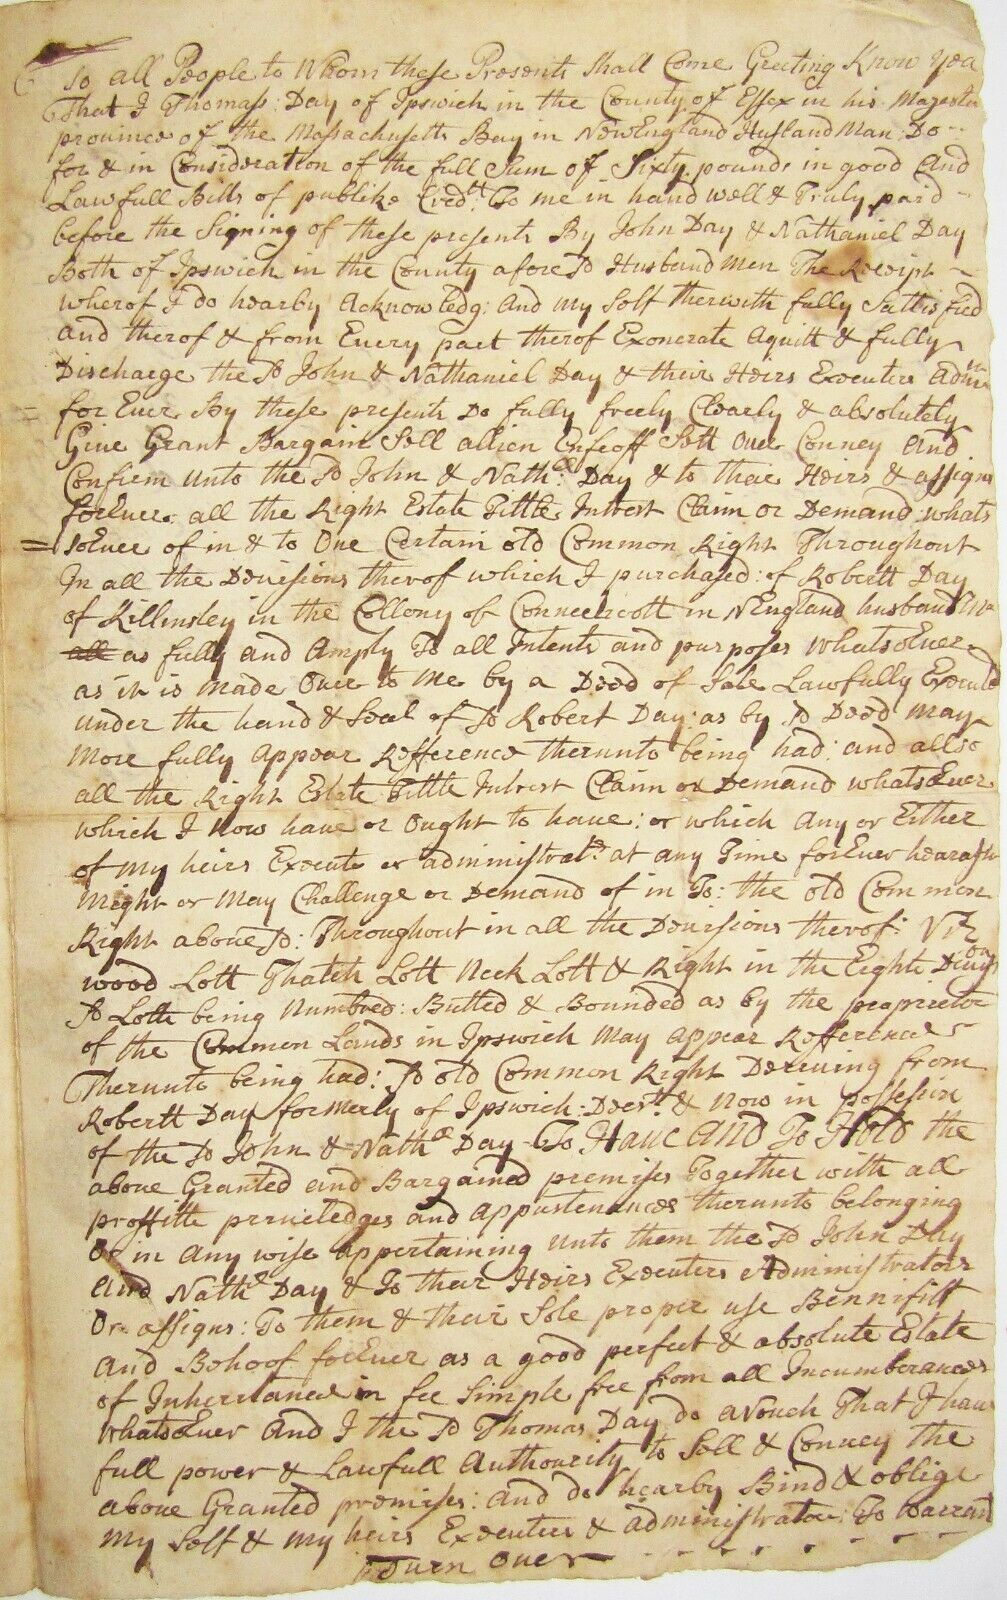 To all People to Whom these Presents shall Come Greeting Know yea
That I Thomas: Day of Ipswich in the County of Essex in his Magesties
prouince of the Massachusetts Bay in NewEngland Husband Man Do
for & in Consideration of the full Sum of Sixty pounds in good And
Lawfull Bills of publike Credtt: To me in hand well & Truly paid
before the Signing of these presents By John Day & Nathaniel Day
Both of Ipswich in the County afore sd Husband men The Receipt
wherof I do hearby Acknowledg: And my Self therwith fully Sattisfied
and therof & from Euery part therof Exonerate aquitt & fully
Discharge the sd John & Nathaniel Day & their Heirs Executers Admrs
for Euer By these presents Do fully freely Clearly & absolutely
Giue Grant Bargain Sell allien Enfeoff Sett Ouer Conuey And
Confirm unto the sd John & Nathll: Day & to thair Heirs & assigns
forEuer: all the Right Estate Tittle Intrest Claim or Demand whats
soEuer of in & to One Certain old Common Right Throughout
In all the Deuisions therof which I purchased: of Robertt Day
of Killinsley in the Collony of Connecticott in NEngland husbandMn
all as fully and Amply To all Intents and purposes whatsoEuer
as it is made Ouer to me by a Deed of Sale Lawfully Executd
under the hand & Seal of sd Robert Day: as by sd Deed may
More fully appear Refference therunto being had: and allso
all the Right Estate Tittle Intrest Claim or Demand whatsoEuer
which I Now haue or Ought to haue: or which Any or Either
of my heirs Execute or administratrs at any Time forEuer hearafter
Might or May Challenge or Demand of in To: the old Common
Right aboue sd: Throughout in all the Deuisions therof: Viz
wood Lott Thatch Lott Neck Lott & Right in the Eighth Deuision
sd Lotts being Numbred: Butted & Bounded as by the proprietor
of the Common Lands in Ipswich May appear Refference
Therunto being had: sd old Common Right Deriuing from
Robertt Day formerly of Ipswich: Decstt & Now in possession
of the sd John & Nathll Day To Haue AND To Hold the
aboue Granted and Bargained premises Together with all
proffitts priueledges and Appurtenances therunto belonging
Or in any wise appertaining unto them the sd John Day
And Nathll Day & To their Heirs Executers Administrators
Or assigns: To them & their Sole proper use Bennifitt
And Behoof forEuer as a good perfect & absolute Estate
of Inheritance in fee Simple free from all Incumberances
WhatsoEuer And I the sd Thomas Day do avouch That I haue
full power & Lawfull Authourity to Sell & Conuey the
aboue Granted premises: and do hearby Bind & oblige
my Self & my heirs Executers & administrators: To Warrand
Turn Ouer